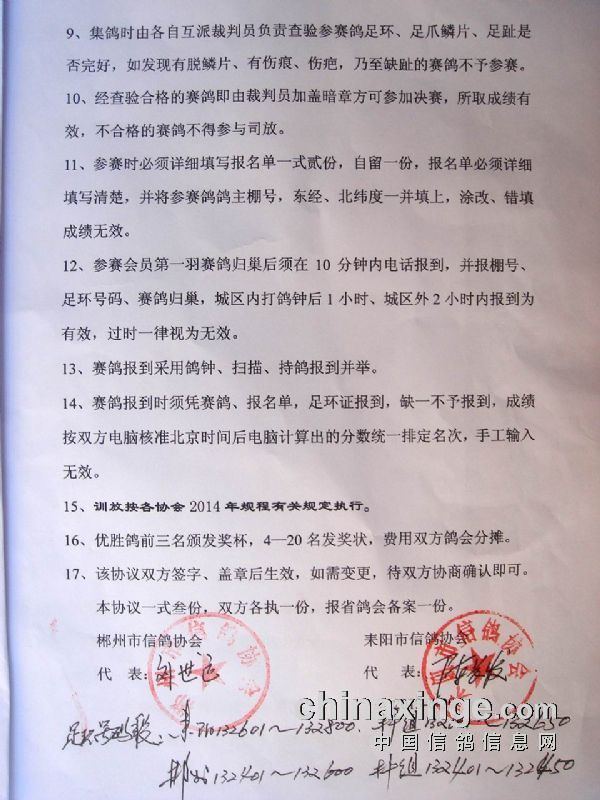 9、集鸽时由各自互派裁判员负责查验参赛鸽足环、足爪鳞片、足趾是
否完好，如发现有脱鳞片、有伤痕、伤疤，乃至缺趾的赛鸽不予参赛。
10、经查验合格的赛鸽即由裁判员加盖暗章方可参加决赛，所取成绩有
效，不合格的赛鸽不得参与司放。
11、参赛时必须详细填写报名单一式贰份，自留一份，报名单必须详细
填写清楚，并将参赛鸽鸽主棚号，东经、北纬度一并填上，涂改、错填
成绩无效。
12、参赛会员第一羽赛鸽归巢后须在 10 分钟内电话报到，并报棚号、
足环号码、赛鸽归巢，城区内打鸽钟后 1 小时、城区外 2 小时内报到为
有效，过时一律视为无效。
13、赛鸽报到采用鸽钟、扫描、持鸽报到并举。
14、赛鸽报到时须凭赛鸽、报名单，足环证报到，缺一不予报到，成绩
按双方电脑核准北京时间后电脑计算出的分数统一排定名次，手工输入
无效。
15、训放按各协会 2014 年规程有关规定执行。
16、优胜鸽前三名颁发奖杯，4—20 名发奖状，费用双方鸽会分摊。
17、该协议双方签字、盖章后生效，如需变更，待双方协商确认即可。
本协议一式叁份，双方各执一份，报省鸽会备案一份。
郴州市信鸽协会 耒阳市信鸽协会
代 表： 代 表：
足环号码段：132601～132800
132401～132600 132401～132450
chinaxinge.com
中国信鸽信息网